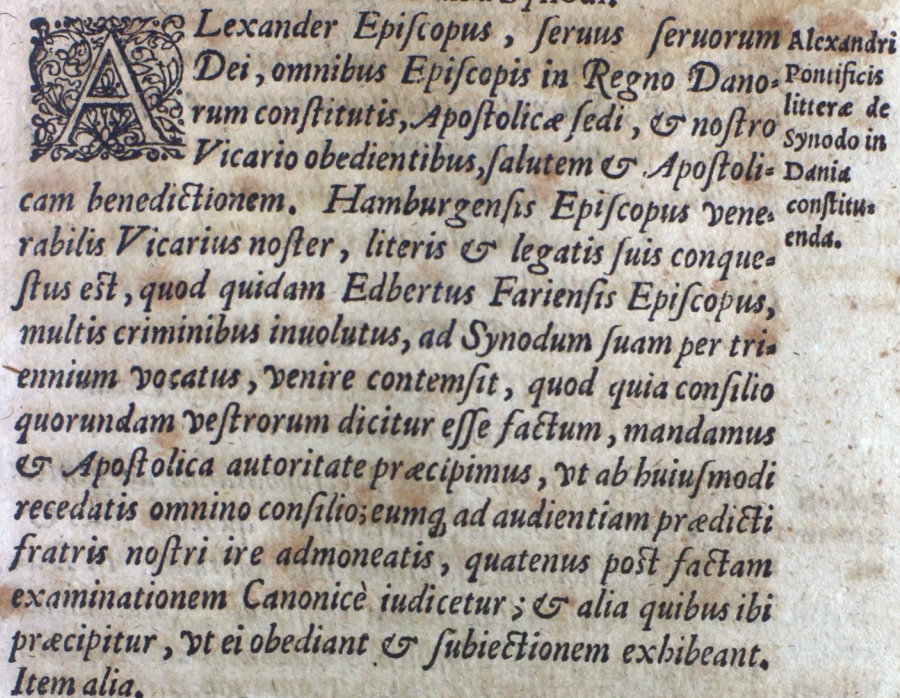 Alexander Episcopus, seruus seruorum
Dei, omnibus Episcopis in Regno Dano-
rum constitutis, Apostolicæ sedi, & nostro
Vicario obedientibus, salutem & Apostoli-
cam benedictionem. Hamburgensis Episcopus vene-
rabilis Vicarius noster, literis & legatis suis conque-
stus est, quod quidam Edbertus Fariensis Episcopus,
multis criminibus inuolutus, ad Synodum suam per tri-
ennium vocatus, venire contemsit, quod quia consilio
quorundam vestrorum dicitur esse factum, mandamus
& Apostolica autoritate præcipimus, vt ab huiusmodi
recedatis omnino consilio; eumq; ad audientiam prædicti
fratris nostri ire admoneatis, quatenus post factam
examinationem Canonicè iudicetur; & alia quibus ibi
præcipitur, vt ei obediant & subiectionem exhibeant.
Item alia.
Alexandri
Pontificis
litteræ de
Synodo in
Dania
constitu-
enda.